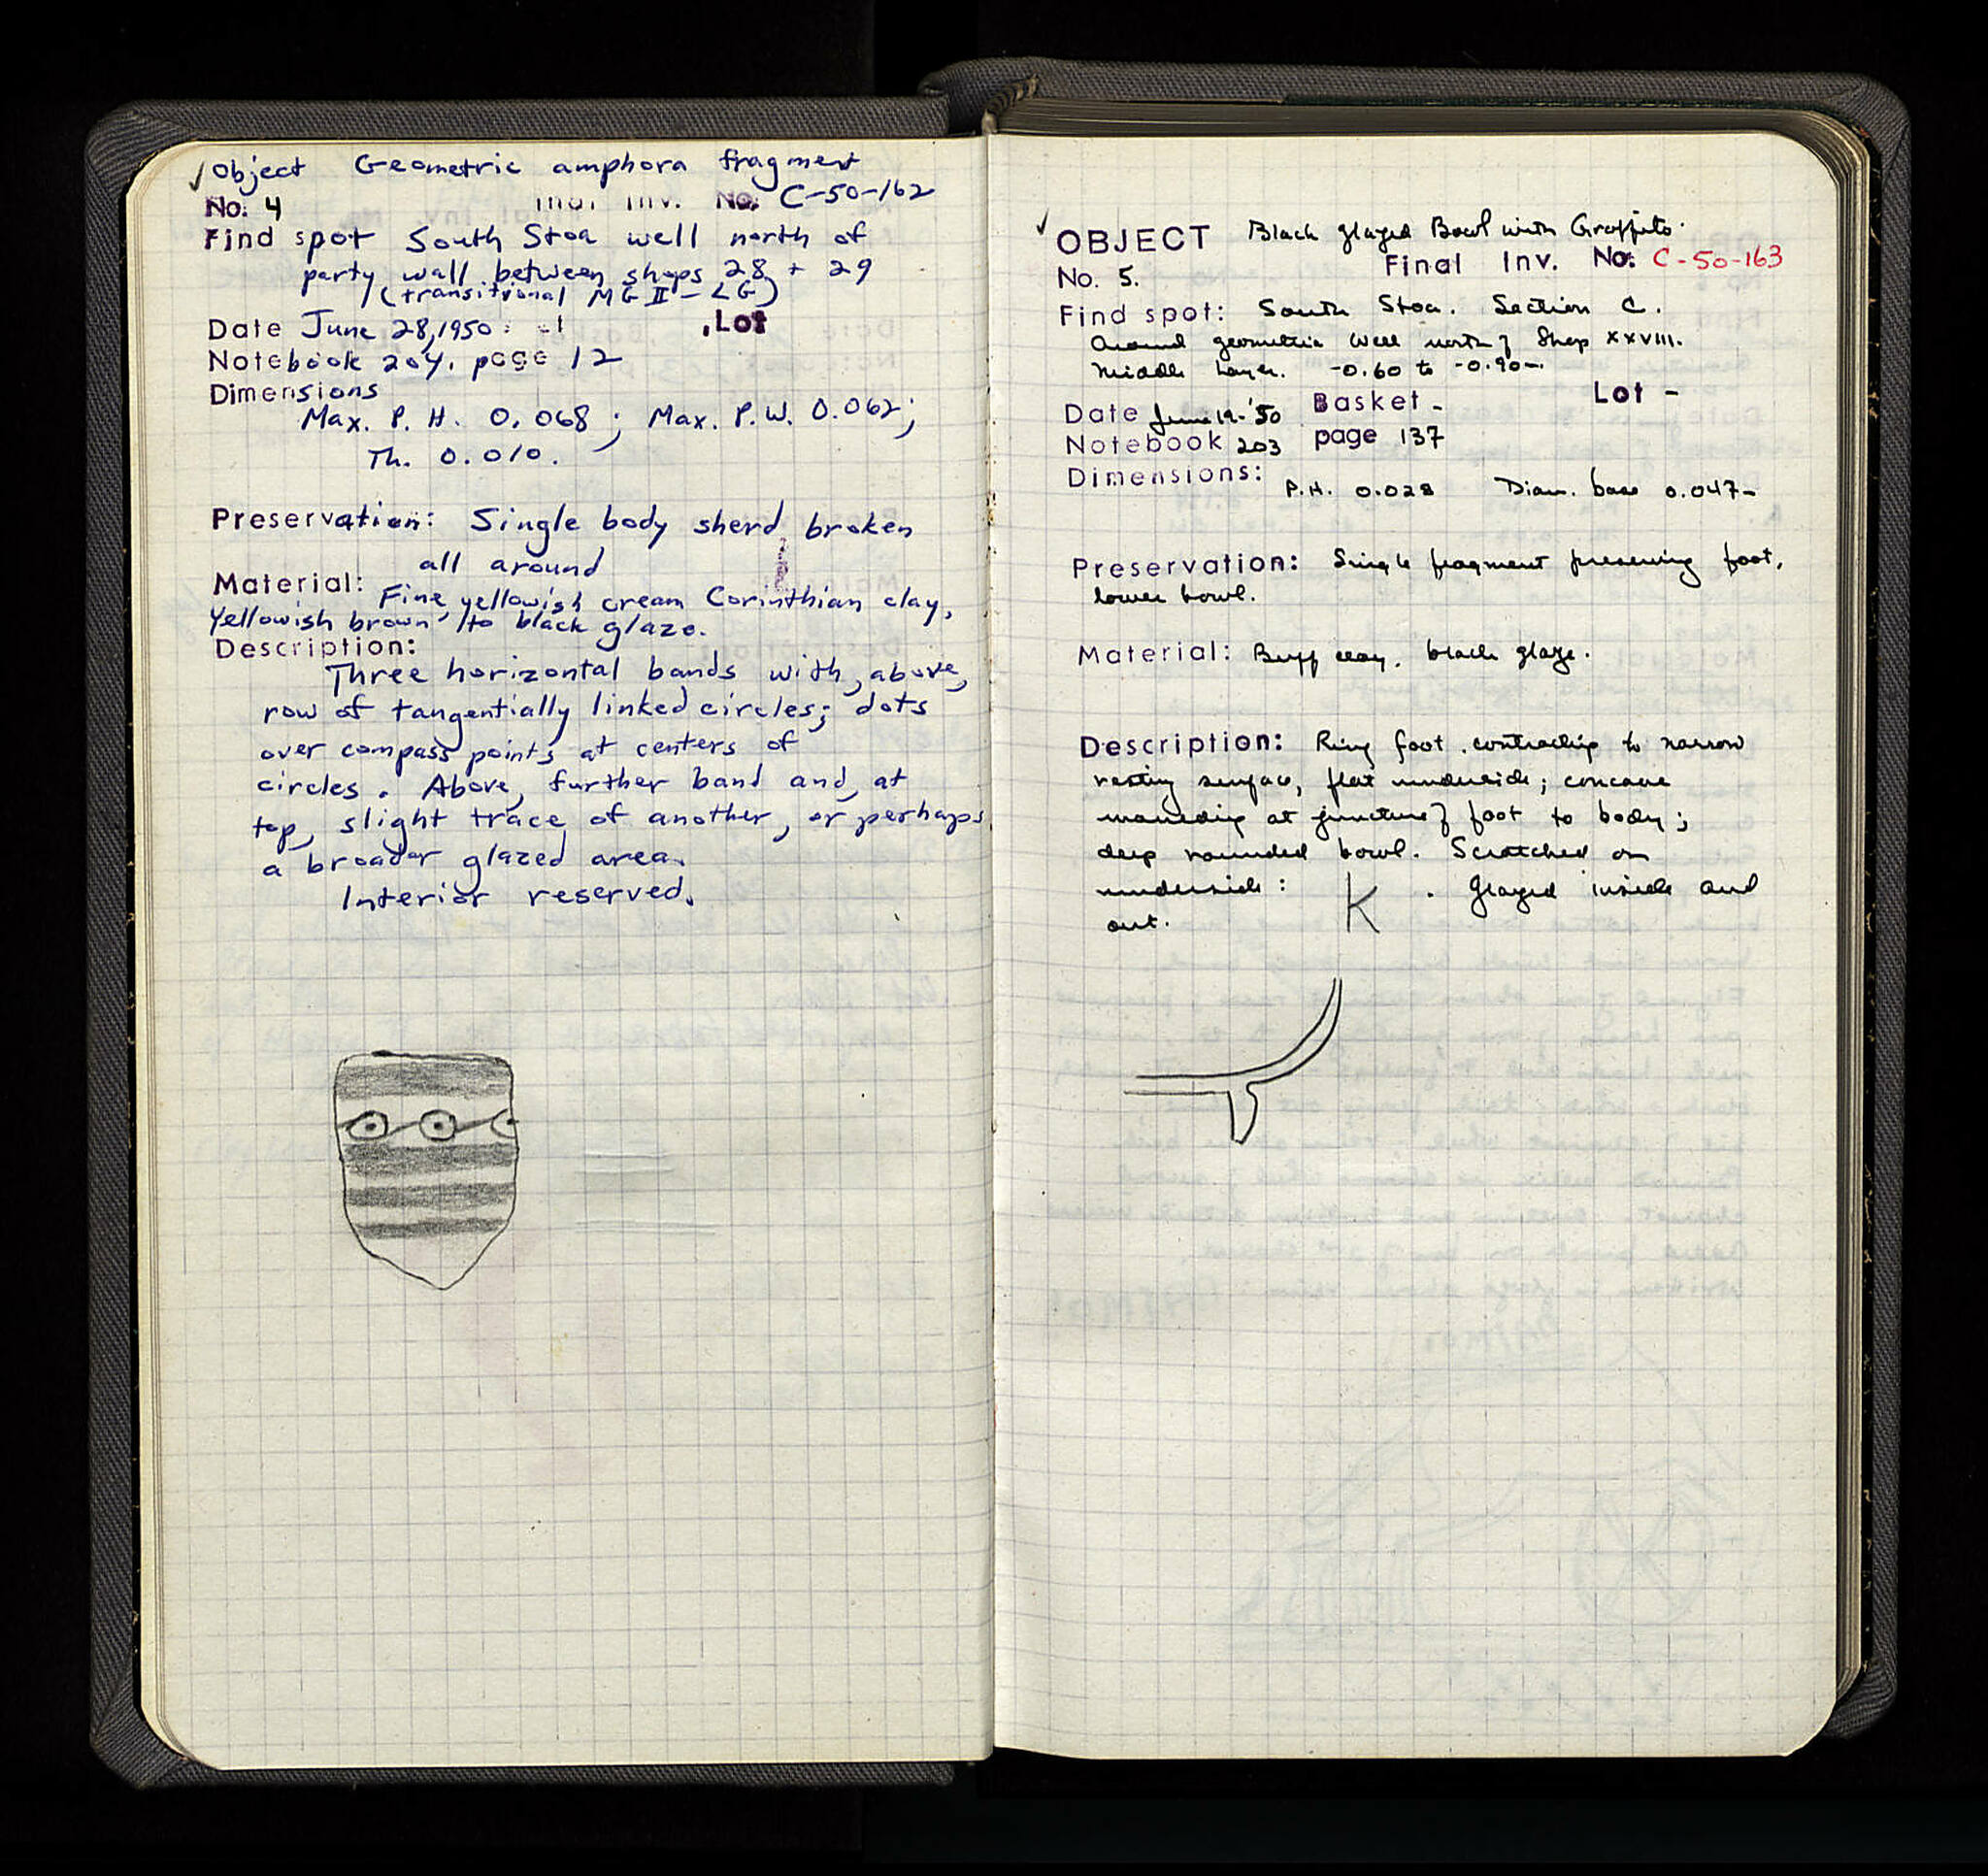 ✓ Object Geometric amphora fragment
No. 4 Inv. No. C-50-162
Find spot South Stoa well north of
party wall between shops 28 + 29
(transitional MG II - LG)
Date June 28, 1950 Lot
Notebook 204, page 12
Dimensions
Max. P. H. 0.068; Max. P.W. 0.062;
Th. 0.010.
Preservation: Single body sherd broken
all around
Material: Fine, yellowish cream Corinthian clay,
Yellowish brown to black glaze.
Description:
Three horizontal bands with, above,
row of tangentially linked circles; dots
over compass points at centers of
circles. Above, further band and, at
top, slight trace of another, or perhaps
a broader glazed area.
Interior reserved.
✓ OBJECT Black glazed Bowl with Graffito.
No. 5. Final Inv. No: C-50-163
Find spot: South Stoa. Section C.
Around geometric well north of Shop XXVIII.
Middle Layer. -0.60 to -0.90m.
Date June 19-'50 Basket - Lot -
Notebook 203 page 137
Dimensions: P.H. 0.028 Diam. base 0.047-
Preservation: Single fragment preserving foot,
lower bowl.
Material: Buff clay, black glaze.
Description: Ring foot, contracting to narrow
resting surface, flat underside; concave
moulding at juncture of foot to body;
deep rounded bowl. Scratched on
underside: K. Glazed inside and
out.